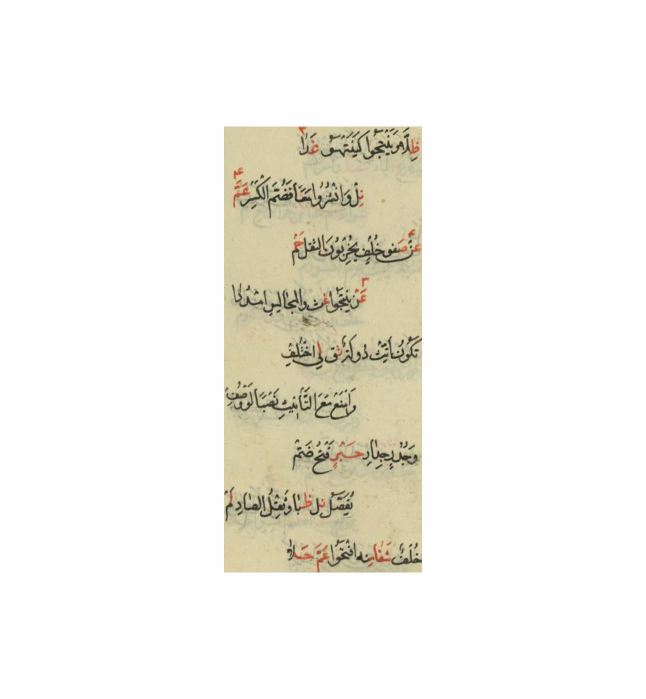 ظلا وينتجوا كينتهوا غدا
نل وانشزوا معا فضم الكسر عم
عن صفو خلف يخربون الثقل حم
ينتجوا غث والمجالس امددا
تكون أنث دولة ثق لي اختلف
وامنع مع التأنيث نصبا لو وصف
وجدر جدار حبر فتح ضم
يفصل نل ظبا وثقل الصاد لم
خلف شفا منه افتحوا عم حلا